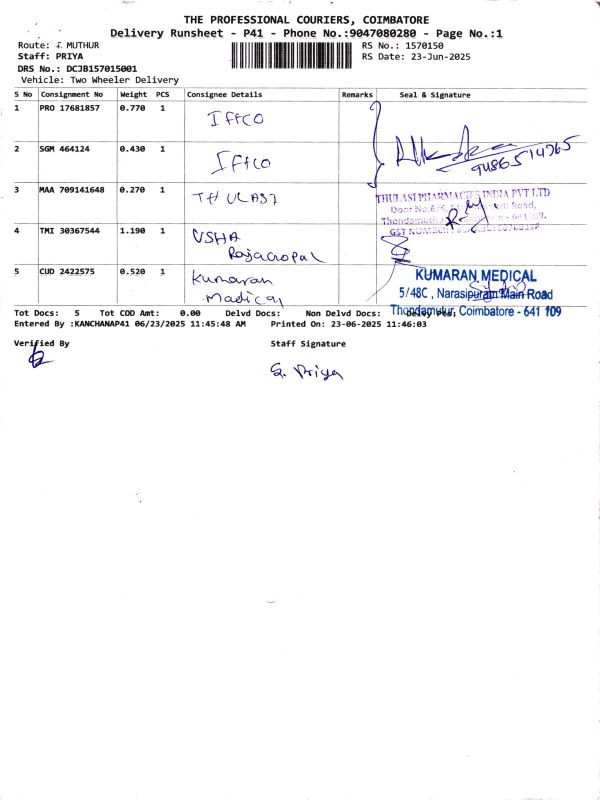 THE PROFESSIONAL COURIERS, COIMBATORE
Delivery Runsheet - P41 - Phone No.:9047080280 - Page No.:1
Route: T. MUTHUR
RS No.: 1570150
Staff: PRIYA
RS Date: 23-Jun-2025
DRS No.: DCJB157015001
Vehicle: Two Wheeler Delivery
S No Consignment No Weight PCS Consignee Details Remarks Seal & Signature
1 PRO 17681857 0.770 1 Iffco
2 SGM 464124 0.430 1 Iffco
9486514965
3 MAA 709141648 0.270 1 THULASI
THULASI PHARMACIES INDIA PVT LTD
Door No.6/6, Road,
641 109.
GST NUMBER
4 TMI 30367544 1.190 1 USHA
Rajagopal
5 CUD 2422575 0.520 1 Kumaran
Madical
KUMARAN MEDICAL
5/48C , Narasipuram Main Road
Thondamutur, Coimbatore - 641 109
Tot Docs: 5 Tot COD Amt: 0.00 Delvd Docs: Non Delvd Docs:
Entered By :KANCHANAP41 06/23/2025 11:45:48 AM Printed On: 23-06-2025 11:46:03
Verified By Staff Signature
S. Priya